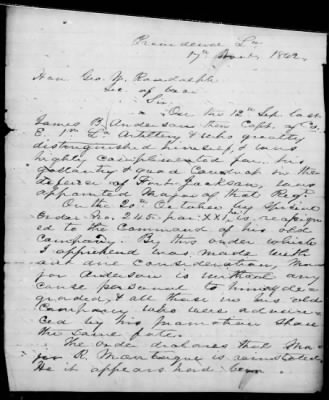 Providence La
17th Nov. 1862.
Hon Geo. W. Randolph
Sec of War
Sir
On the 12th Sep last
James B. Anderson then Capt of Co
E. 1st La Artillery & who greatly
distinguished himself, & was
highly complimented for his
gallantry & good conduct in the
defense of Fort Jackson, was
appointed Major of that Regt
On the 20th October by Special
Order No. 245 par XXI is reassign
ed to the Command of his old
Company. By this order which
I apprehend was made with
out due consideration, Ma
jor Anderson is without any
cause personal to himself de
graded, & all those in his old
Company who were advan
ced by his promotion share
the same fate.
The order declares that Ma
jor R. is reinstated
He it appears had been